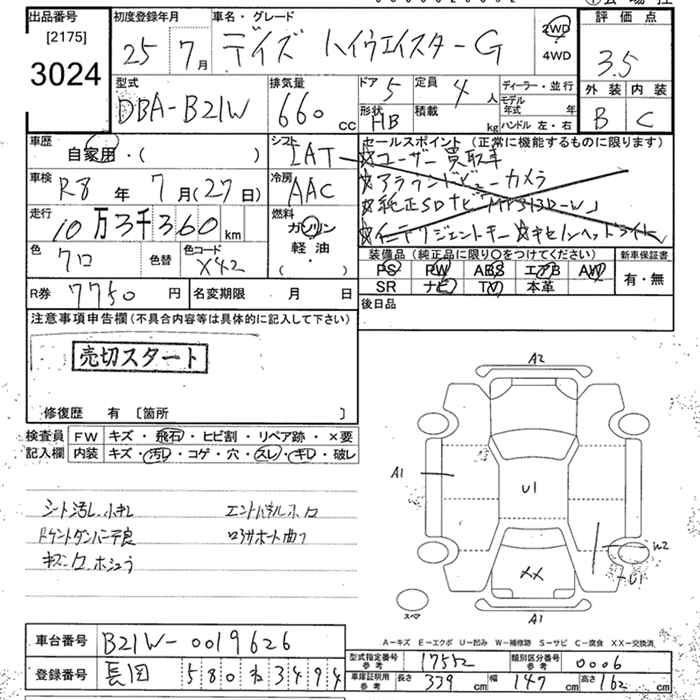 出品番号
[2175]
3024
初度登録年月
25 7月
車名・グレード
デイズ ハイウエイスターG
2WD
4WD
評価点
3.5
外装 内装
B C
型式
DBA-B21W
排気量
660 cc
ドア 5
定員 4人
形状 HB
積載 kg
ディーラー・並行
モデル年式 年
ハンドル 左・右
車歴
自家用・( )
シフト
IAT
セールスポイント(正常に機能するものに限ります)
☆ユーザー買取車
☆アラウンドビューカメラ
☆純正SDナビ MP313D-W
☆インテリジェントキー ☆キセノンヘッドライト
車検
R8年 7月(27日)
冷房
AAC
走行
10万3千360km
燃料
ガソリン
軽油
( )
色
クロ
色替
色コード
X42
装備品(純正品に限り○をつけてください)
新車保証書
PS PW ABS エアB AW
SR ナビ TV 本革
有・無
R券 7750円
名変期限 月 日
後日品
注意事項申告欄(不具合内容等は具体的に記入して下さい)
売切スタート
修復歴 有 [箇所 ]
検査員
記入欄
FW キズ・飛石・ヒビ割・リペア跡・×要
内装 キズ・汚レ・コゲ・穴・スレ・キレ・破レ
シート汚し.小キレ
エントパネル小凹
Rゲートダンパー不良
ラジサポート曲り
キズ凹ホシュウ
A2
A1
U1
W2
U1
XX
スペマ
A1
A=キズ E=エクボ U=凹み W=補修跡 S=サビ C=腐食 XX=交換済
車台番号 B21W-0019626
登録番号 長岡 580 ね 3494
型式指定番号
参考
17552
類別区分番号
参考
0006
車庫証明用
参考
長さ 339cm 幅 147cm 高さ 162cm